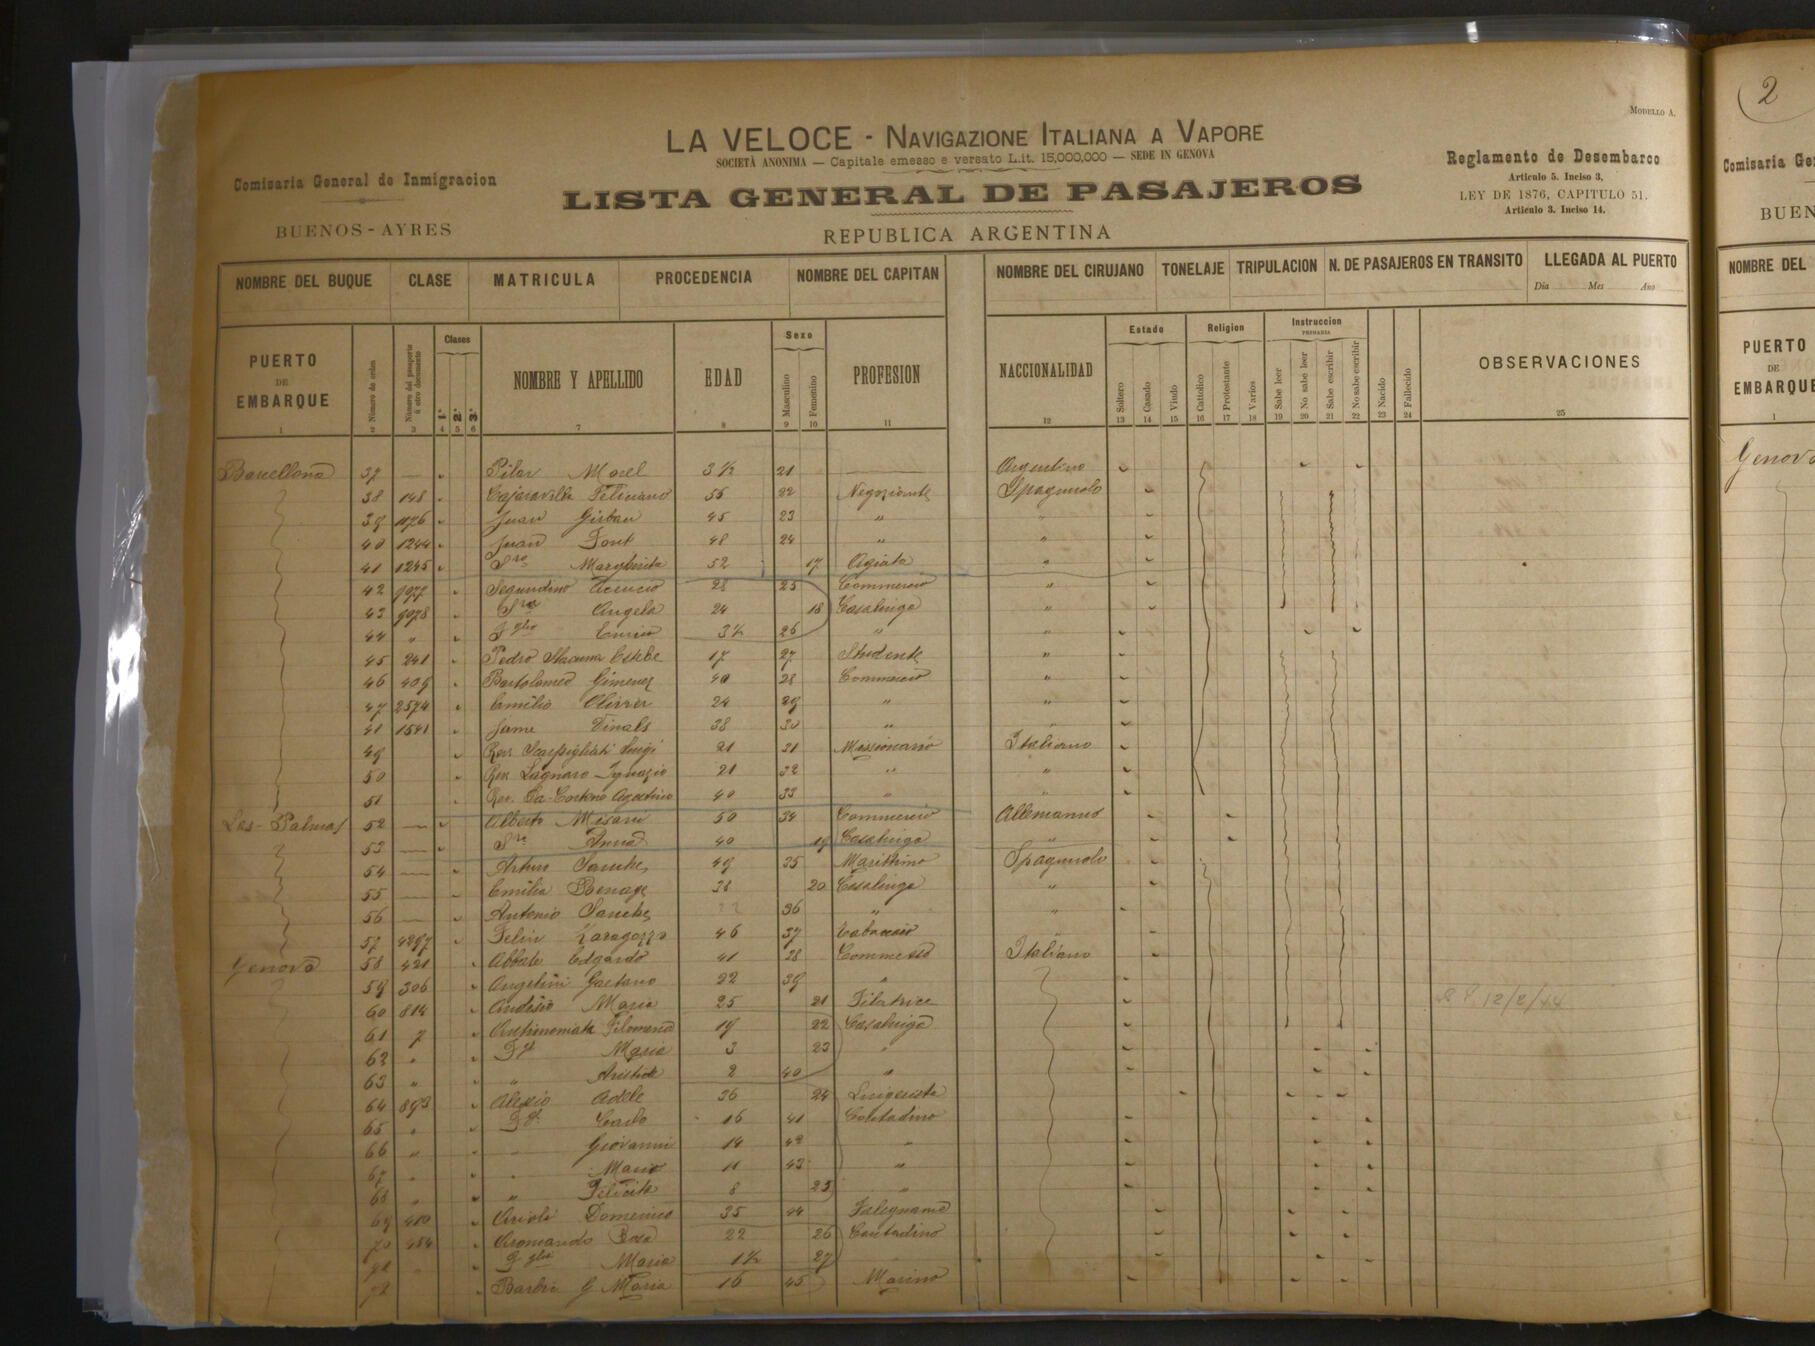 MODELLO A.
LA VELOCE - NAVIGAZIONE ITALIANA A VAPORE
SOCIETÀ ANONIMA — Capitale emesso e versato L.it. 15,000,000 — SEDE IN GENOVA
Comisaria General de Inmigracion
BUENOS-AYRES
LISTA GENERAL DE PASAJEROS
REPUBLICA ARGENTINA
Reglamento de Desembarco
Articulo 5. Inciso 3.
LEY DE 1876, CAPITULO 51.
Articulo 3. Inciso 14.
NOMBRE DEL BUQUE CLASE MATRICULA PROCEDENCIA NOMBRE DEL CAPITAN NOMBRE DEL CIRUJANO TONELAJE TRIPULACION N. DE PASAJEROS EN TRANSITO LLEGADA AL PUERTO
Dia Mes Ano
PUERTO DE EMBARQUE Número de orden Número del pasaporte ú otro documento Clases 1ª 2ª 3ª NOMBRE Y APELLIDO EDAD Sexo Masculino Femenino PROFESION NACCIONALIDAD Estado Soltero Casado Viudo Religion Cattolico Protestante Varios Instruccion PRIMARIA Sabe leer No sabe leer Sabe escribir No sabe escribir Nacido Fallecido OBSERVACIONES
1 2 3 4 5 6 7 8 9 10 11 12 13 14 15 16 17 18 19 20 21 22 23 24 25
Barcellona 37 — Pilar Morel 3 ½ 21 — Argentino
38 148 Feliciano 55 22 Negoziante Spagnuolo
39 1176 Juan Girbau 45 23 " "
40 1244 Juan Font 48 24 " "
41 1245 Sra Margherita 52 17 Agiata "
42 9077 Segundino 28 25 Commercio "
43 9078 Sra Angela 24 18 Casalinga "
44 " Figlio Enrico 3 ½ 26 " "
45 241 Pedro Estebe 17 27 Studente "
46 409 Bartolomeo Gimenez 40 28 Commercio "
47 2574 Emilio Oliver 24 29 " "
1541 Jame Vinals 38 30 " "
49 Rev. Scarpigliati Luigi 21 31 Missionario Italiano
50 Rev. Lagnaro Ignazio 21 32 " "
51 Rev. Agostino 40 33 " "
Las-Palmas 52 — Alberto Misani 50 34 Commercio Allemanno
53 — Sra Anna 40 19 Casalinga "
54 — Arturo Sanchez 49 35 Marittimo Spagnuolo
55 — Emilia 38 20 Casalinga "
56 — Antonio Sanchez 36 " "
57 4297 Felix Zaragozza 46 37 "
Genova 58 421 Abbate Edgardo 41 38 Commesso Italiano
59 306 Angelini Gaetano 22 39 "
60 814 Andisio Maria 25 21 Filatrice 12/2/44
61 7 Filomena 19 22 Casalinga
62 " Fª Maria 3 23 "
63 " " Aristide 2 40 "
64 893 Alessio Adele 36 24 Lingerista
65 " Fº Carlo 16 41 Contadino
66 " " Giovanni 14 42 "
67 " " Mario 11 43 "
68 " " Felicita 8 25 "
69 410 Arioli Domenico 35 44 Falegname
70 454 Aromando Rosa 22 26 Contadino
Figlia Maria 1 ½ 27
72 Barbri G Maria 16 45 Marino
2
Comisaria Ge
BUEN
NOMBRE DEL
PUERTO
DE
EMBARQUE
1
Genova